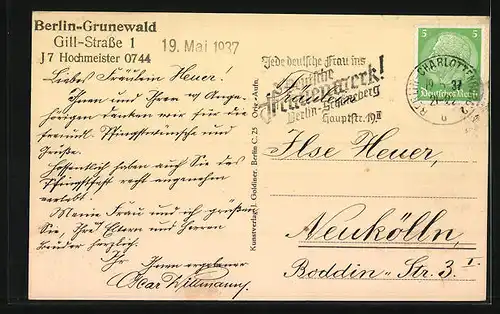 Berlin-Grunewald
Gill-Straße 1
J 7 Hochmeister 0744
19. Mai 1937
Liebes Fräulein Heuer!
Ihnen und Ihren w. Ange-
hörigen danken wir für die
freundl. Pfingstwünsche und
Grüße.
Hoffentlich haben auch Sie das
Pfingstfest recht angenehm
verlebt.
Meine Frau und ich grüßen
Sie, Ihre Eltern und Herrn
Bruder herzlich.
Ihr Ihnen ergebener
Oscar Willmann.
Kunstverlag J. Goldiner, Berlin C. 25 Orig.-Aufn.
Jede deutsche Frau ins
Deutsche
Frauenwerk!
Berlin-Schöneberg
Hauptstr. 19 II
BERLIN-CHARLOTTENBURG
5 5
Deutsches Reich
Ilse Heuer,
Neukölln,
Boddin-Str. 3 I.